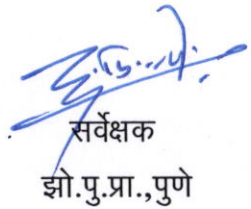 सर्वेक्षक
झो.पु.प्रा.,पुणे